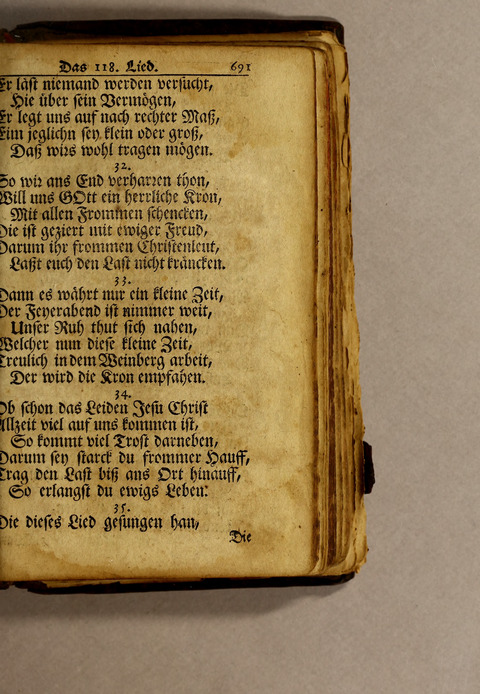 Das 118. Lied. 691
Er läst niemand werden versucht,
Hie über sein Vermögen,
Er legt uns auf nach rechter Maß,
Eim jeglichn sey klein oder groß,
Daß wirs wohl tragen mögen.
32.
So wir ans End verharren thon,
Will uns GOtt ein herrliche Kron,
Mit allen Frommen schencken,
Die ist geziert mit ewiger Freud,
Darum ihr frommen Christenleut,
Laßt euch den Last nicht kräncken.
33.
Dann es währt nur ein kleine Zeit,
Der Feyerabend ist nimmer weit,
Unser Ruh thut sich nahen,
Welcher nun diese kleine Zeit,
Treulich in dem Weinberg arbeit,
Der wird die Kron empfahen.
34.
Ob schon das Leiden Jesu Christ
Allzeit viel auf uns kommen ist,
So kommt viel Trost darneben,
Darum sey starck du frommer Hauff,
Trag den Last biß ans Ort hinauff,
So erlangst du ewigs Leben.
35.
Die dieses Lied gesungen han,
Die